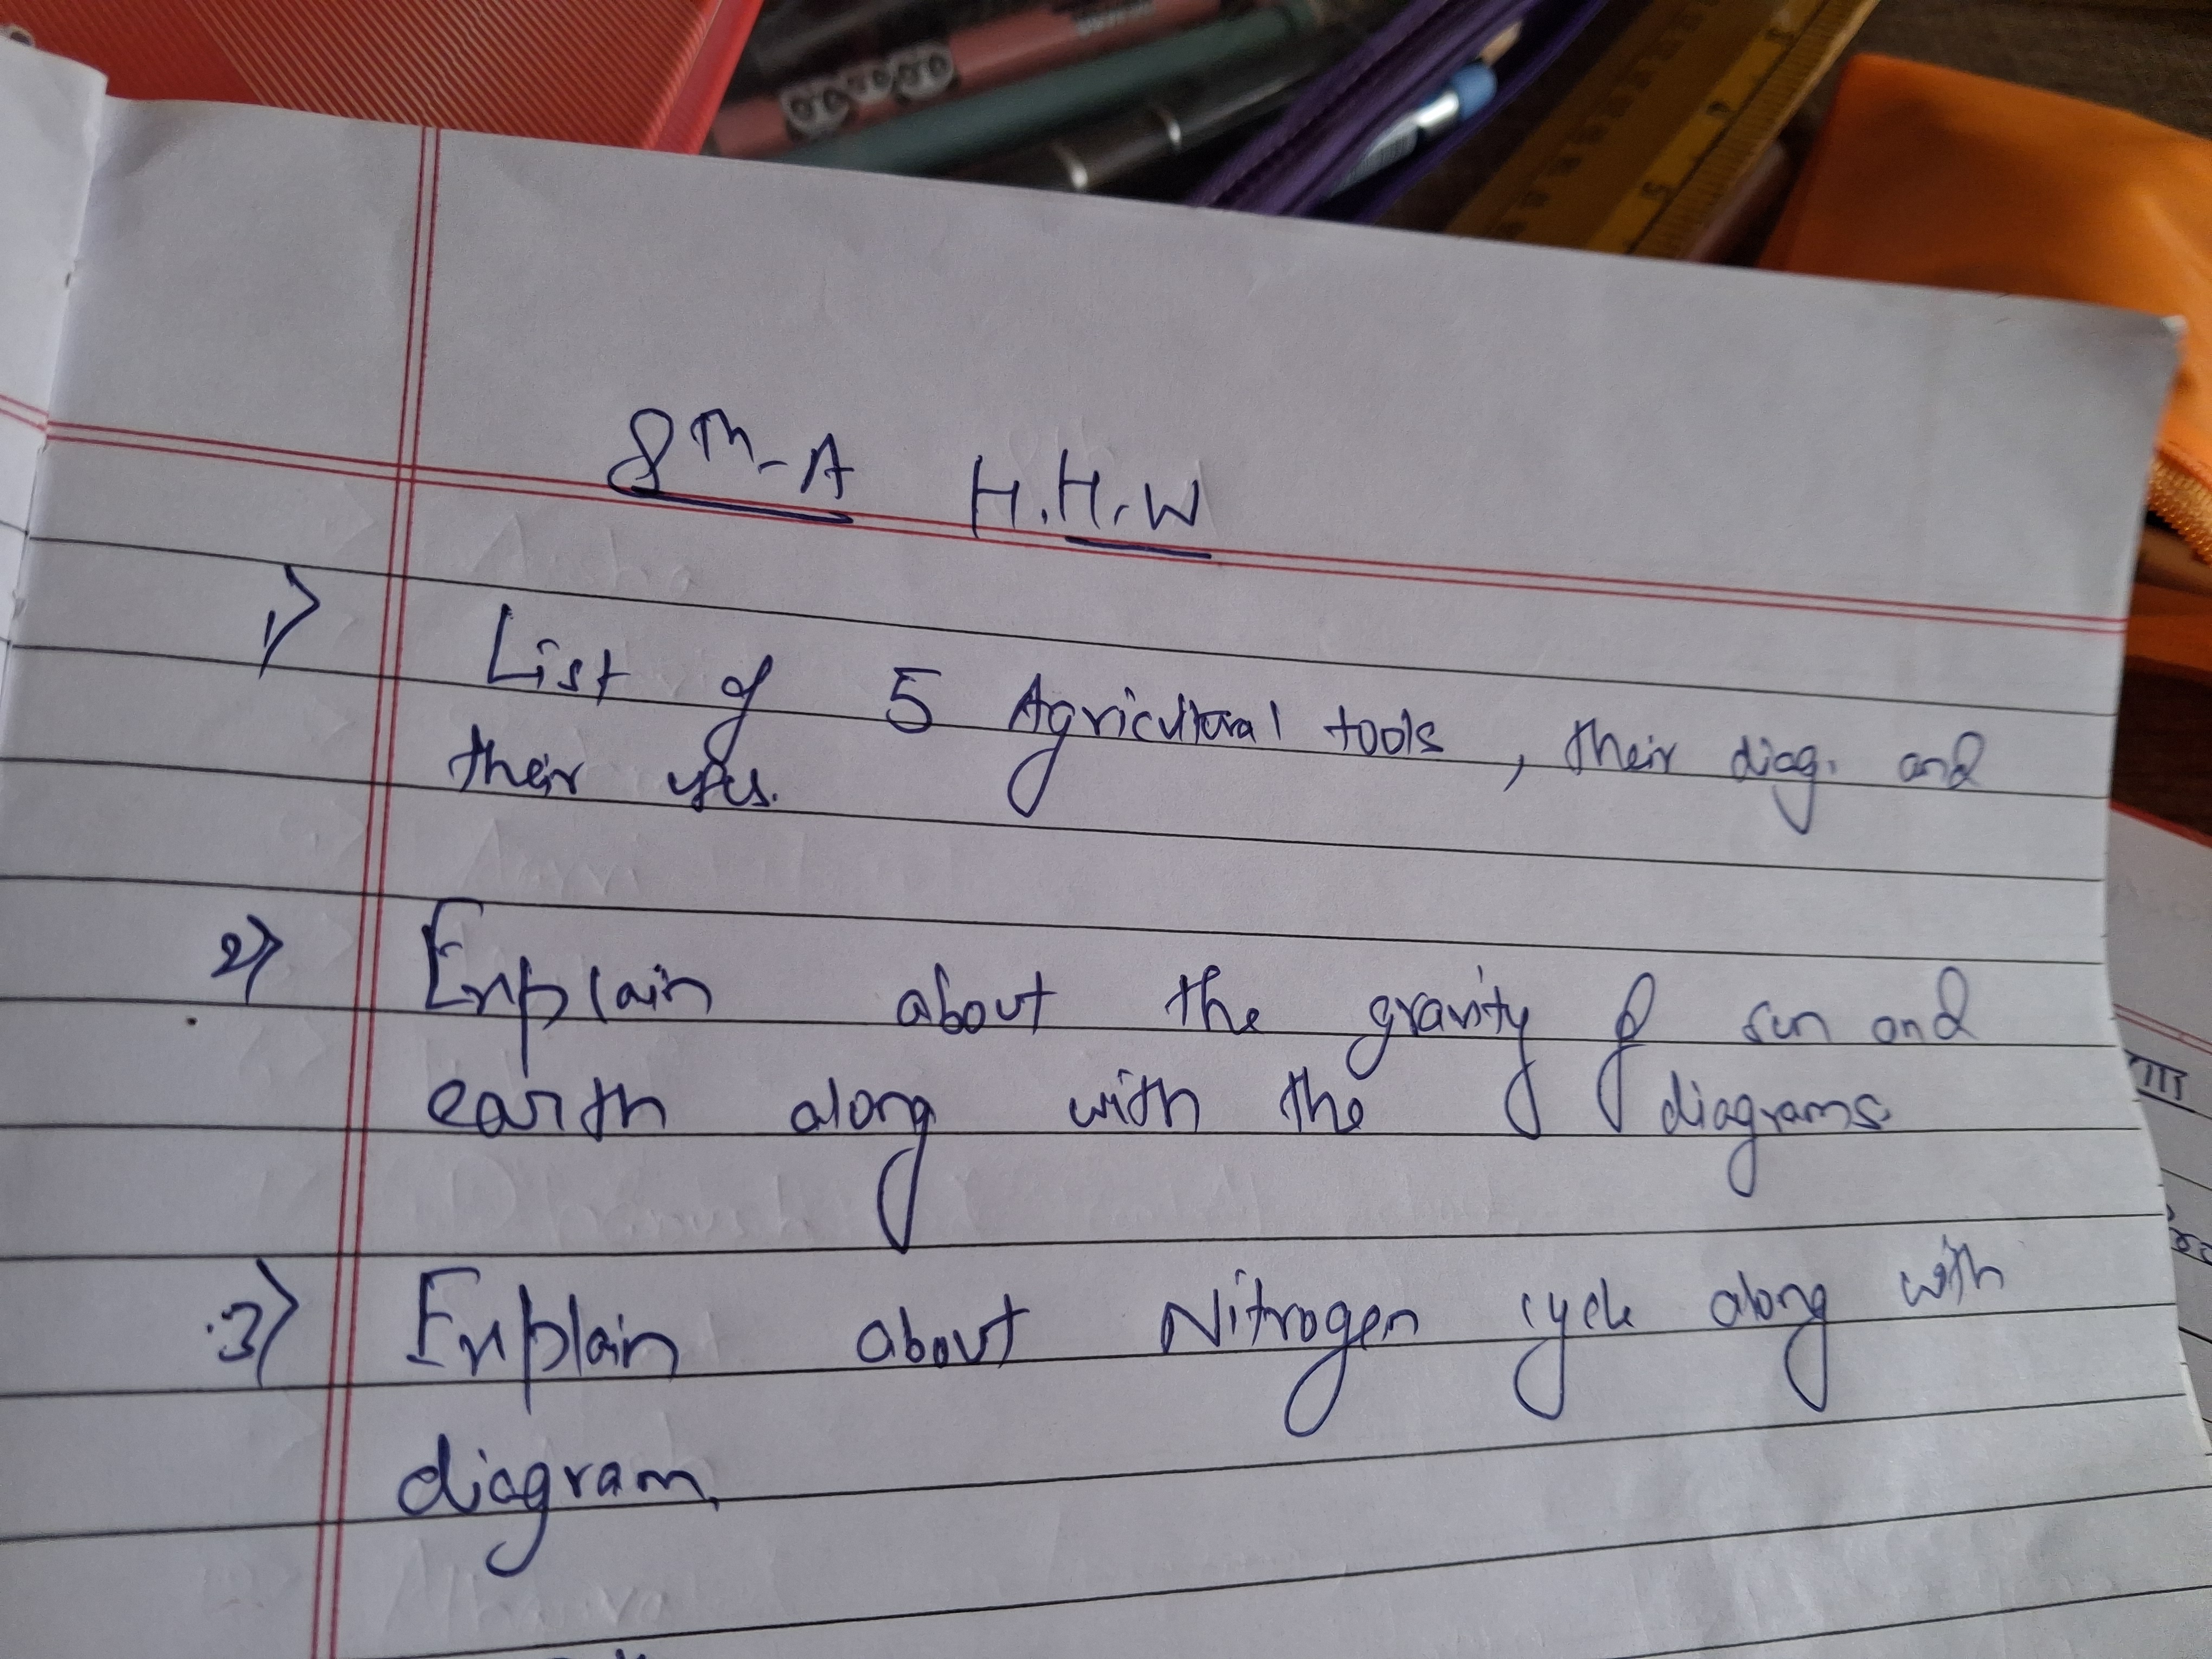 8th-A H.H.W
1) List of 5 Agricultural tools, their diag. and
their
2) Explain about the gravity of sun and
earth along with the diagrams.
3) Explain about Nitrogen cycle along with
diagram.